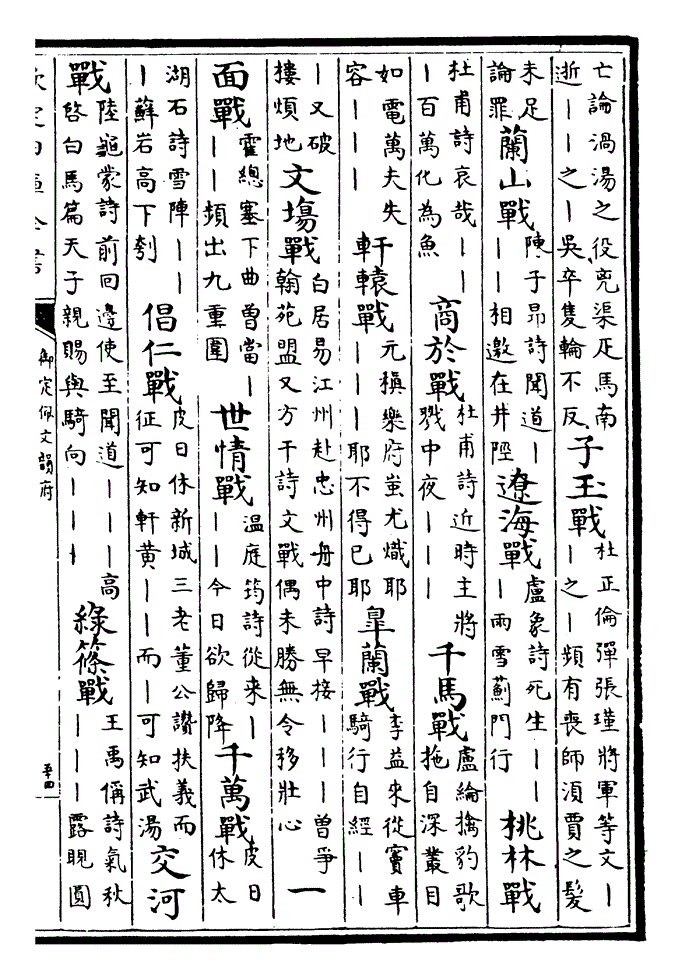 亡論渦湯之役兗渠疋馬南逝｜｜之｜吳卒隻輪不反 子玉戰 杜正倫彈張瑾將軍等文｜｜之｜頻有喪師湏賈之髪
未足論罪 蘭山戰 陳子昻詩聞道｜｜｜相邀在井陘 遼海戰 盧象詩死生｜｜｜雨雪薊門行 桃林戰
杜甫詩哀哉｜｜｜百萬化為魚 商於戰 杜甫詩近時主將戮中夜｜｜｜ 千馬戰 盧綸擒豹歌拖自深叢目
如電萬夫失容｜｜｜ 軒轅戰 元稹樂府蚩尤熾耶｜｜｜耶不得已耶 臯蘭戰 李益來從竇車騎行自經｜｜
｜又破摟煩地 文塲戰 白居易江州赴忠州舟中詩早接｜｜｜曽爭翰苑盟又方干詩文戰偶未勝無令移壯心 一
面戰 霍總塞下曲曽當｜｜｜頻出九重圍 世情戰 温庭筠詩從来｜｜｜今日欲歸降 千萬戰 皮日休太
湖石詩雪陣｜｜｜蘇岩高下刳 倡仁戰 皮日休新城三老董公讃扶義而征可知軒黄｜｜而｜可知武湯 交河
戰 陸龜蒙詩前回邊使至聞道｜｜｜高啓白馬篇天子親賜與騎向｜｜｜ 綠篠戰 王禹偁詩氣秋｜｜｜露睍圓
御定佩文韻府